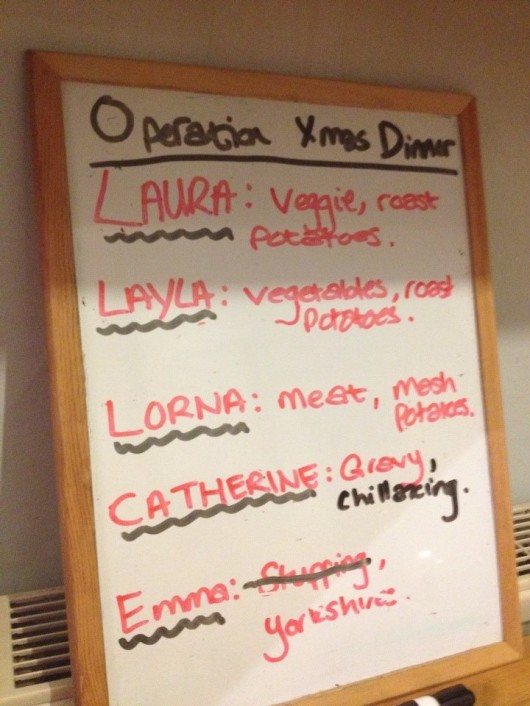 Operation Xmas Dinner
LAURA: Veggie, roast
potatoes.
LAYLA: vegetables, roast
Potatoes.
LORNA: meat, mash
potatoes.
CATHERINE: Gravy,
chillaxing.
Emma: Stuffing,
yorkshires.